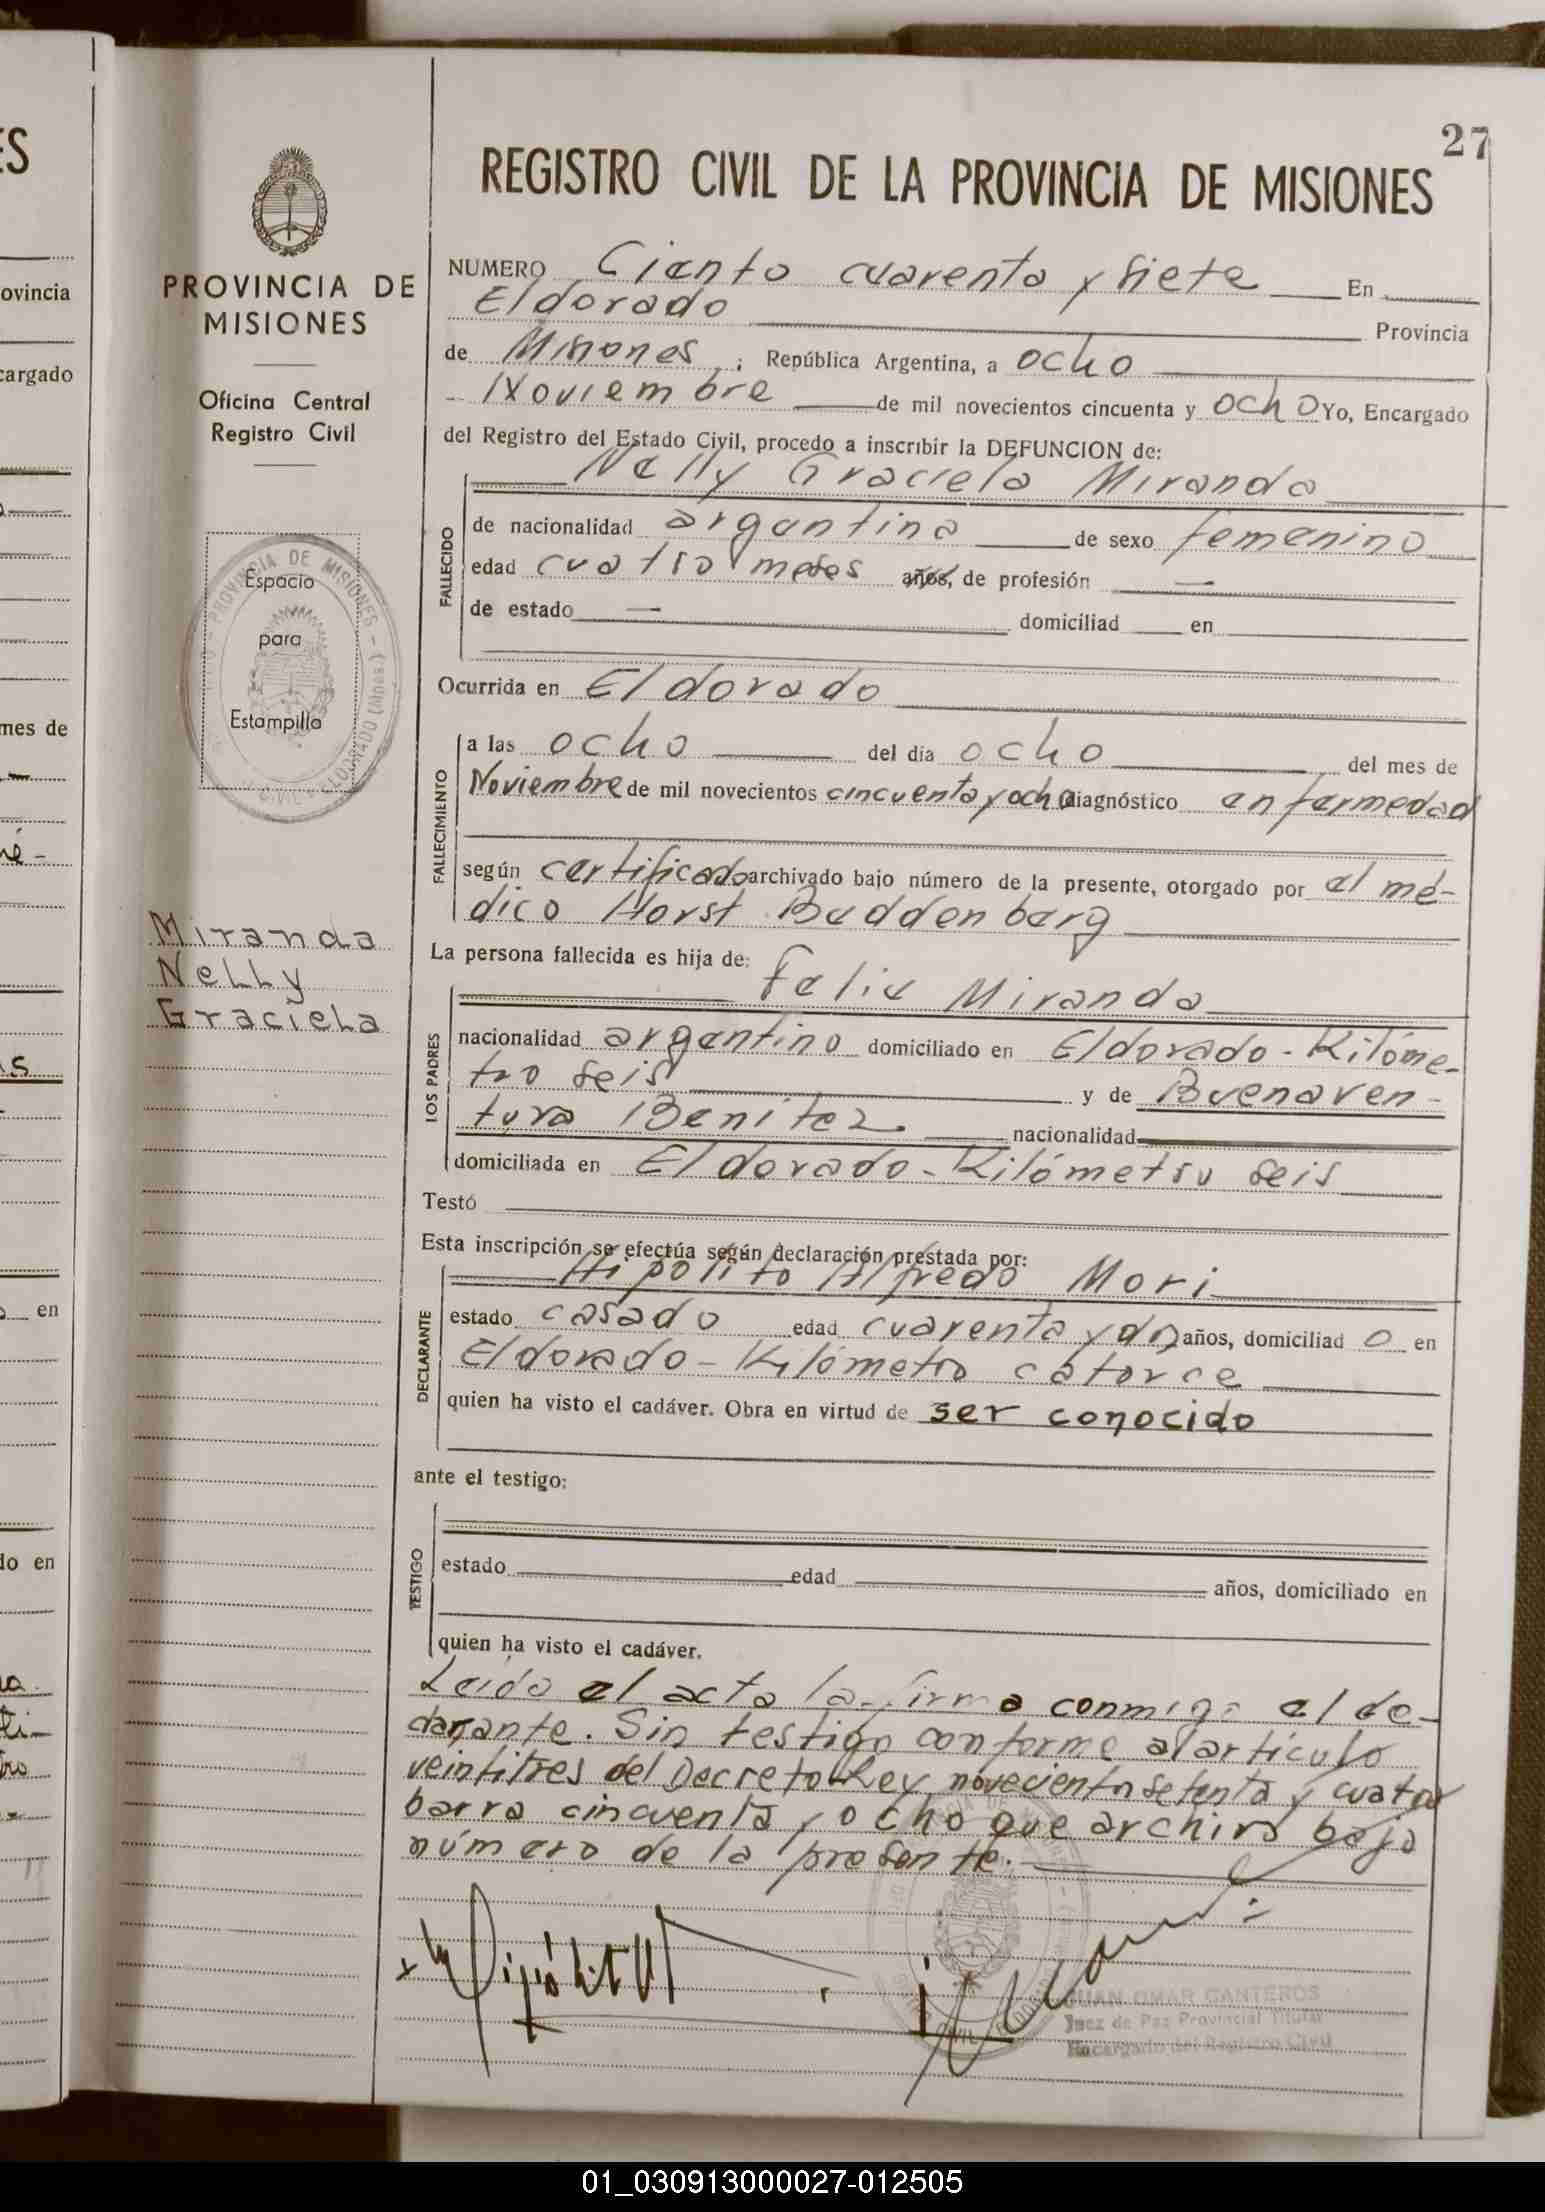 27
REGISTRO CIVIL DE LA PROVINCIA DE MISIONES
PROVINCIA DE
MISIONES
Oficina Central
Registro Civil
Espacio
para
Estampilla
Miranda
Nelly
Graciela
NUMERO Ciento cuarenta y siete En
Eldorado Provincia
de Misiones ; República Argentina, a ocho
Noviembre de mil novecientos cincuenta y ocho Yo, Encargado
del Registro del Estado Civil, procedo a inscribir la DEFUNCION de:
Nelly Graciela Miranda
FALLECIDO
de nacionalidad argentina de sexo femenino
edad cuatro meses años, de profesión —
de estado — domiciliad en
Ocurrida en Eldorado
FALLECIMIENTO
a las ocho del día ocho del mes de
Noviembre de mil novecientos cincuenta y ocho diagnóstico enfermedad
según certificado archivado bajo número de la presente, otorgado por el mé-
dico Horst Buddenberg
La persona fallecida es hija de:
Felix Miranda
LOS PADRES
nacionalidad argentino domiciliado en Eldorado - Kilóme-
tro seis y de Buenaven-
tura Benitez nacionalidad
domiciliada en Eldorado - Kilómetro seis
Testó
Esta inscripción se efectúa según declaración prestada por:
Hipólito Alfredo Mori
DECLARANTE
estado casado edad cuarenta y dos años, domiciliad o en
Eldorado - Kilómetro catorce
quien ha visto el cadáver. Obra en virtud de ser conocido
ante el testigo:
TESTIGO
estado edad años, domiciliado en
quien ha visto el cadáver.
Leído el acta la firma conmigo el de-
clarante. Sin testigo conforme al artículo
veintitres del Decreto-Ley novecientos setenta y cuatro
barra cincuenta y ocho que archivo bajo
número de la presente.
JUAN OMAR CANTEROS
Juez de Paz Provincial Titular
Encargado del Registro Civil
01_030913000027-012505